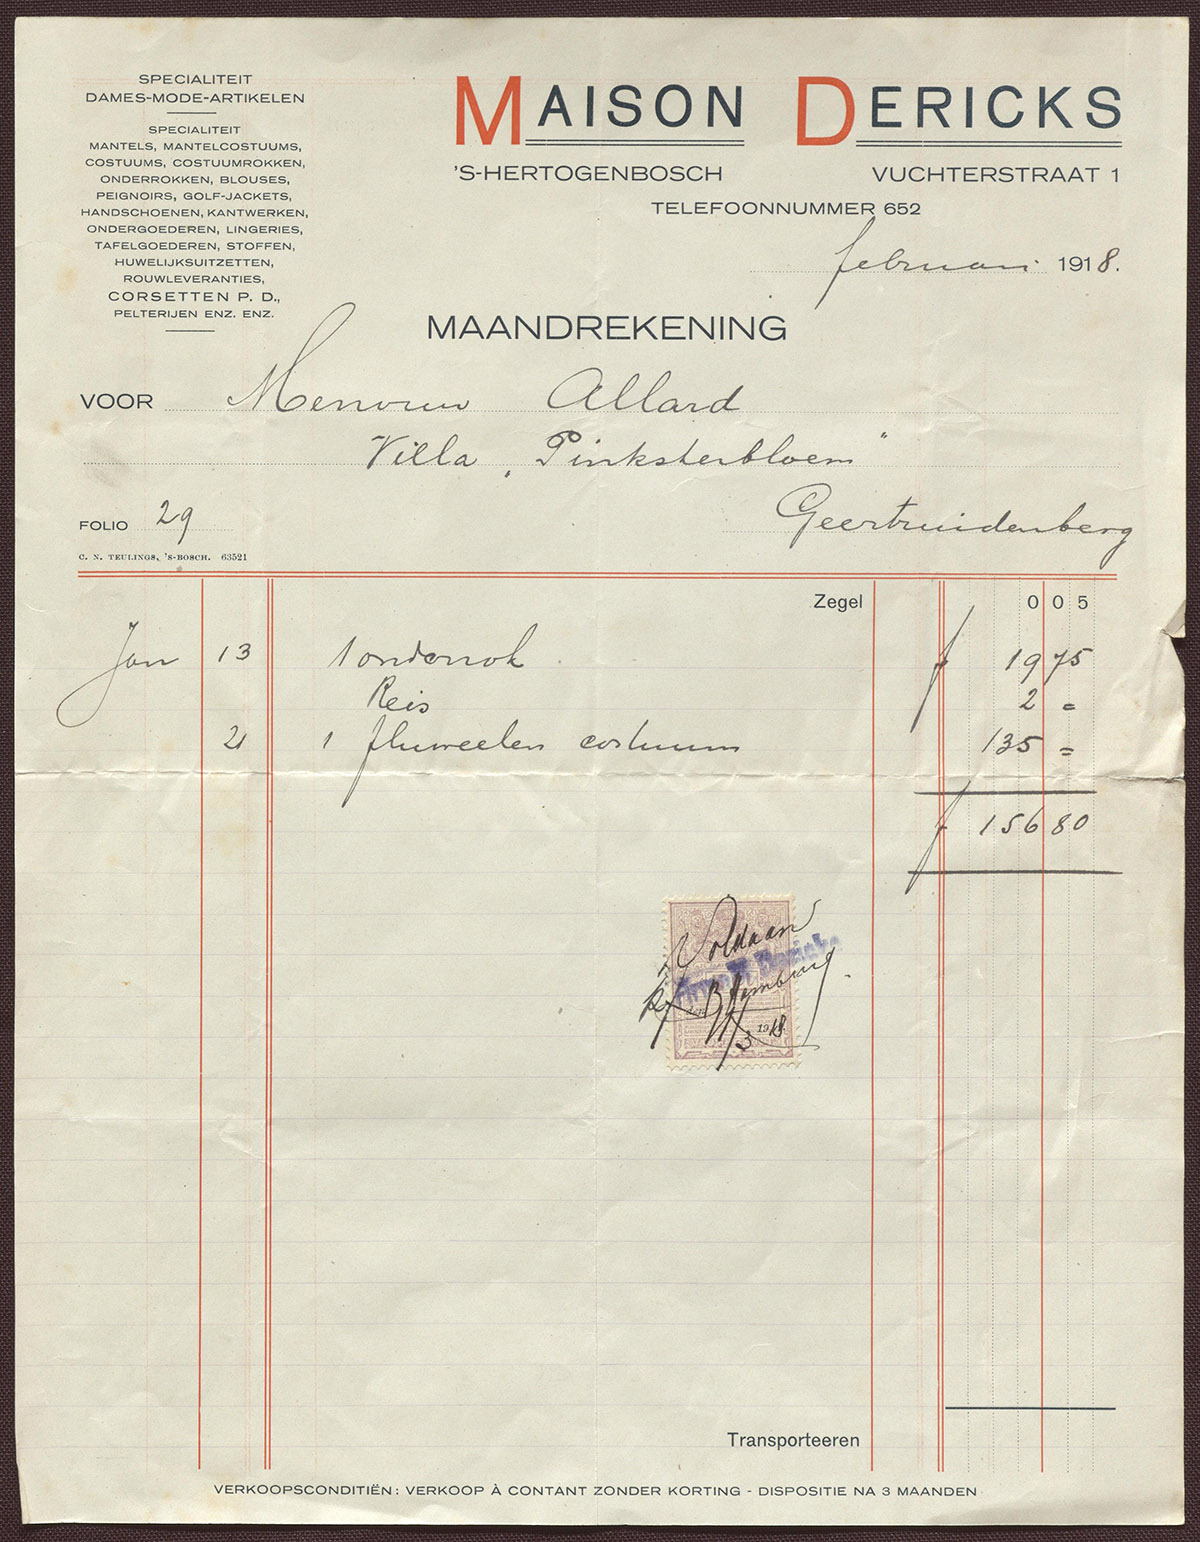 SPECIALITEIT
DAMES-MODE-ARTIKELEN
SPECIALITEIT
MANTELS, MANTELCOSTUUMS,
COSTUUMS, COSTUUMROKKEN,
ONDERROKKEN, BLOUSES,
PEIGNOIRS, GOLF-JACKETS,
HANDSCHOENEN, KANTWERKEN,
ONDERGOEDEREN, LINGERIES,
TAFELGOEDEREN, STOFFEN,
HUWELIJKSUITZETTEN,
ROUWLEVERANTIES,
CORSETTEN P. D.,
PELTERIJEN ENZ. ENZ.
MAISON DERICKS
'S-HERTOGENBOSCH VUCHTERSTRAAT 1
TELEFOONNUMMER 652
februari 1918.
MAANDREKENING
VOOR Mevrouw Allard
Villa „Pinksterbloem"
FOLIO 29 Geertruidenberg
C. N. TEULINGS, 'S-BOSCH. 63521
Zegel 0 0 5
Jan 13 1 onderrok f 19 75
Reis 2 =
21 1 fluweelen costuum 135 =
f 156 80
Voldaan
1918
Transporteeren
VERKOOPSCONDITIËN: VERKOOP À CONTANT ZONDER KORTING - DISPOSITIE NA 3 MAANDEN